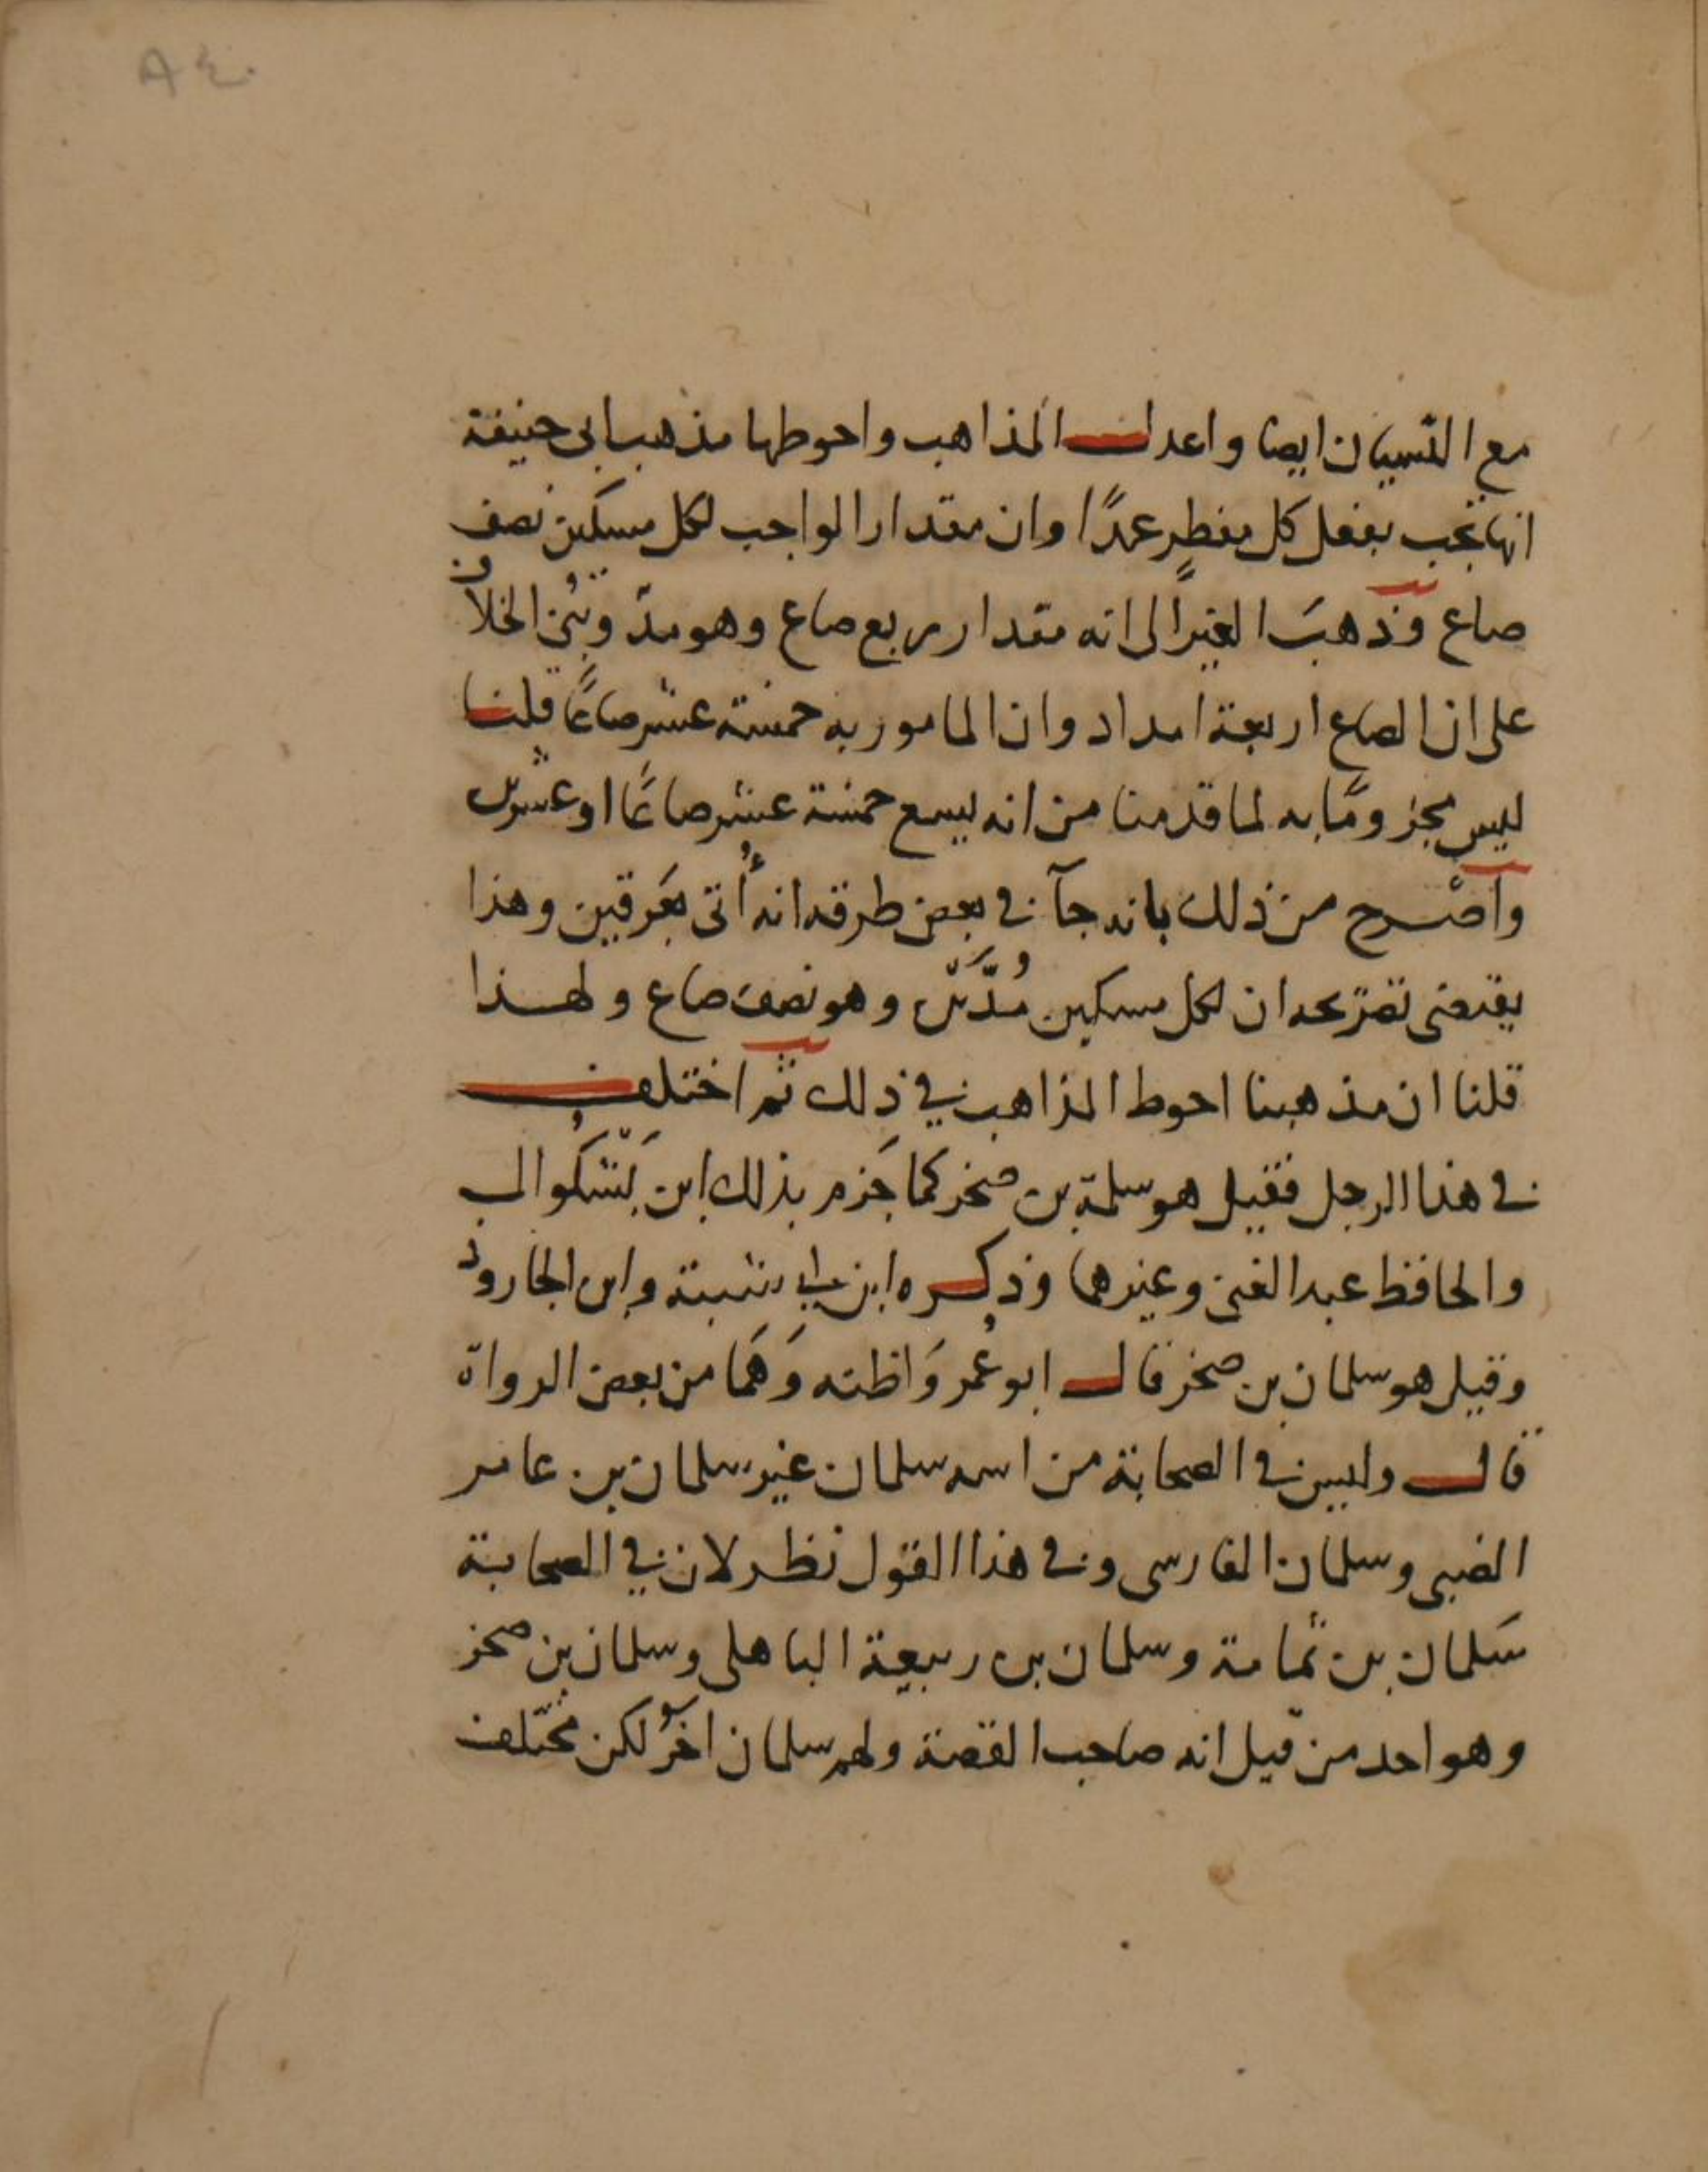 ٨٤٠
مع النسيان ايضا واعدل المذاهب واحوطها مذهب ابى حنيفة
انها تجب بفعل كل مفطر عمدًا وان مقدار الواجب لكل مسكين نصف
صاع وذهبَ الغيرُ الى انه مقدار ربع صاع وهو مدّ وبُنى الخلاف
على ان الصاع اربعة امداد وان المامور به خمسة عشر صاعًا قلنا
ليس مجزومًا به لما قدمنا من انه يسع خمسة عشر صاعًا او عشرين
وآصْرح من ذلك بانه جآ فى بعض طرقه انه أُتى بعَرقين وهذا
يقتضى تصريحه ان لكل مسكين مُدَّين وهو نصف صاع ولهذا
قلنا ان مذهبنا احوط المذاهب في ذلك ثم اختلف
فى هذا الرجل فقيل هو سلمة بن صخر كما جَزم بذلك ابن بَشكُوال
والحافظ عبد الغنى وغيرهما وذكره ابن ابى شيبة وابن الجارود
وقيل هو سلمان بن صخر قال ابو عُمر وَاظنه وَهَما من بعض الرواة
قال وليس فى الصحابة من اسمه سلمان غير سلمان بن عامر
الضبى وسلمان الفارسى وفى هذا القول نظر لان في الصحابة
سَلمان بن ثمامة وسلمان بن ربيعة الباهلى وسلمان بن صخر
وهو احد من قيل انه صاحب القصة ولهم سلمان اخَرُ لكن مختلف